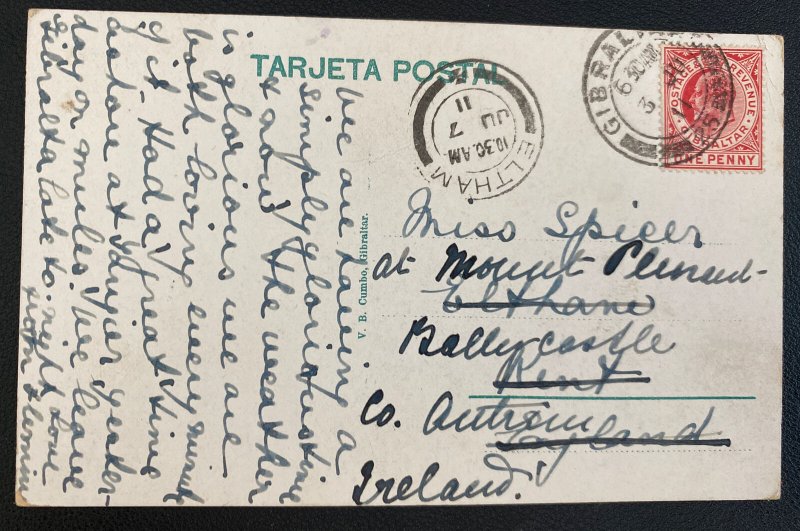 TARJETA POSTAL
we are having a
simply glorious time
& now! the weather
is glorious we are
both loving every minute
of it. Had a great time
ashore at Tangier yester-
day on mules. We leave
Gibraltar late to-night Love
from
V. B. Cumbo, Gibraltar.
ELTHAM
10.30.AM
JU 7
11
GIBRALTAR
6 30
3
POSTAGE & REVENUE
GIBRALTAR
ONE PENNY
Miss Spicer
at Mount Pleasant
Eltham
Ballycastle
Kent
Co. Antrim
England
Ireland.